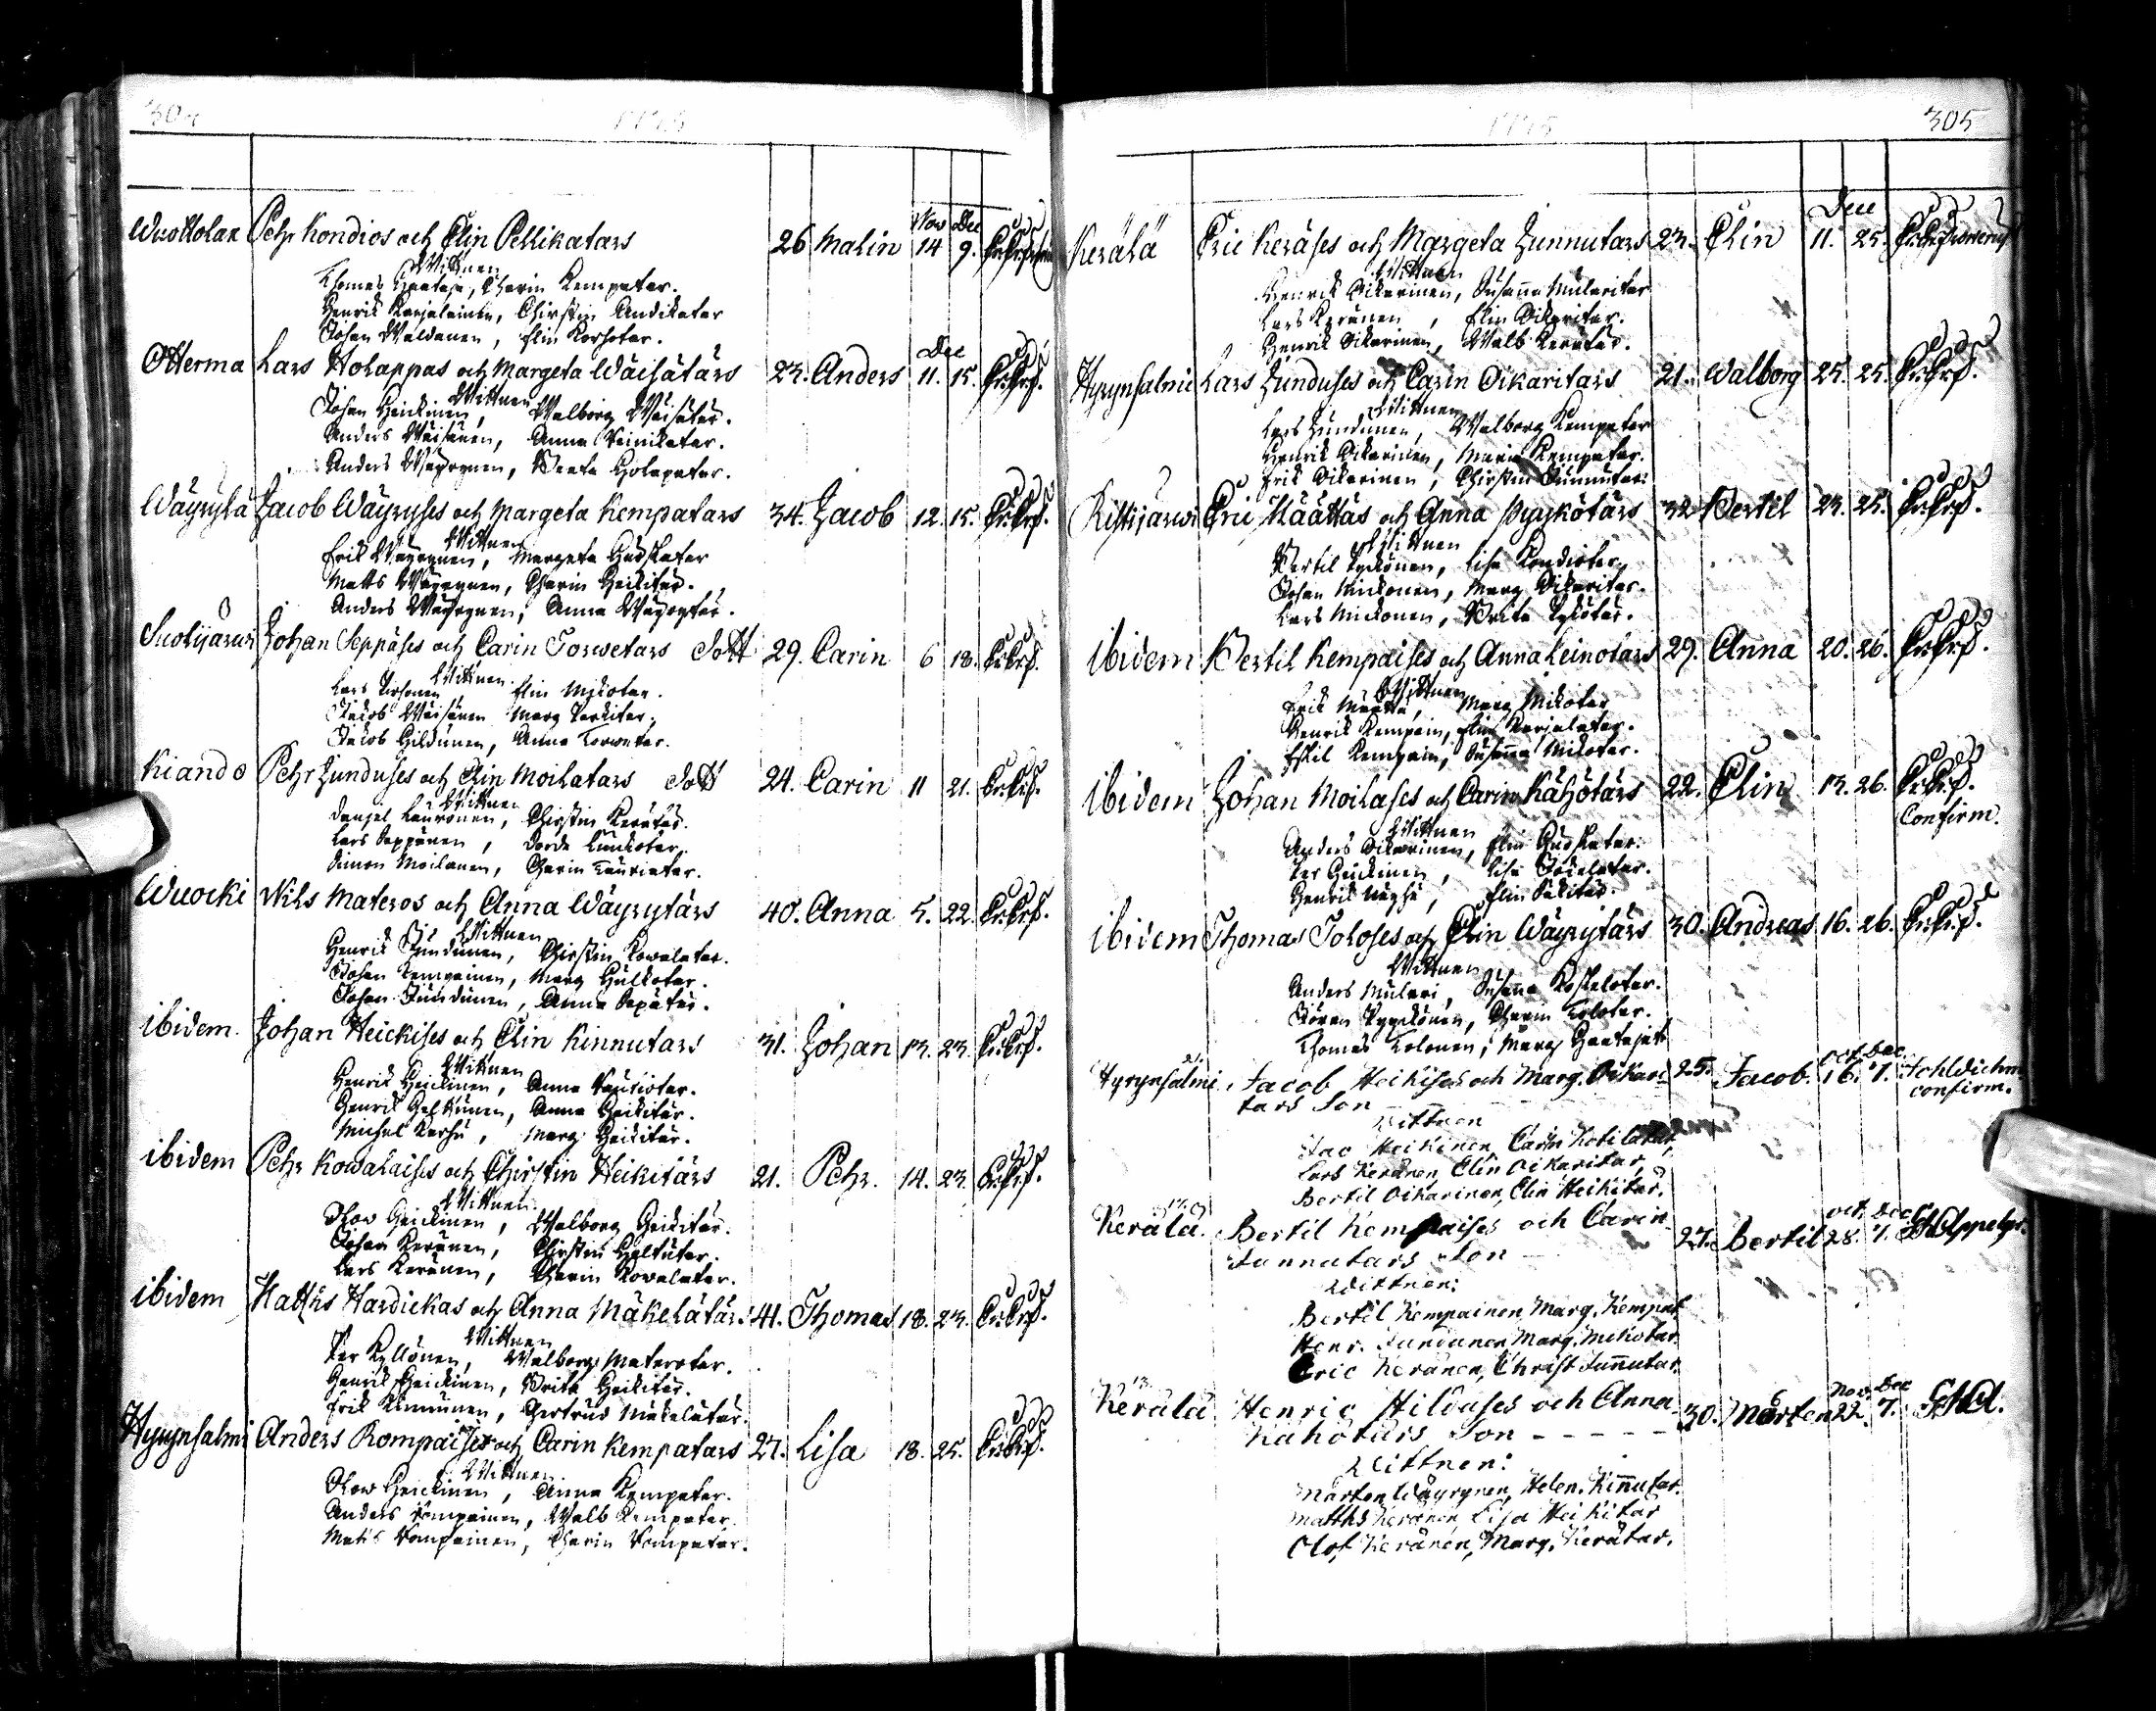 304
Nov Dec
Wuottolax Pehr Kondios och Elin Pellikatars 26 Malin 14 9.
Wittnen
Thomas Haataja, Charin Kempatar.
Henrik Karjalainen, Chirstin Andikatar
Johan Waldanen, Elin Korhotar.
Dec
Otterma Lars Holappas och Margeta Wäisätärs 23. Anders 11. 15.
Wittnen
Johan Heickinen, Walborg Wäisätär.
Anders Wäisänen, Anna Keinikatar.
Anders Wäyrynen, Beata Holapatar.
Wäyrylä Jacob Wäyryses och Margeta Kempatars 34. Jacob 12. 15.
Wittnen
Erik Wäyrynen, Margeta Hudskatar
Matts Wäyrynen, Charin Heikitär.
Anders Wäyrynen, Anna Wäyrytär.
Suolijärwi Johan Seppäses och Carin Torwetars Dott 29. Carin 6 18.
Wittnen
Lars Elin Mikotar.
Jakob Wäisänen Marg
Jacob Hildunen, Anna Torwetar.
Kiando Pehr Junduses och Elin Moilatars Dott 24. Carin 11 21.
Wittnen
Daniel Lauronen, Chirstin Kerätär.
Lars Seppänen, Dorde
Simon Moilanen, Charin Lauriatar.
Wuocki Nils Materos och Anna Wäyrytärs 40. Anna 5. 22.
Wittnen
Henrik Jundunen, Chirstin Kowalatar.
Johan Kempainen, Marg Hulkotar.
Johan Jundunen, Anna Sepätär.
ibidem. Johan Heickises och Elin Kinnutars 31. Johan 13. 23.
Wittnen
Henrik Heickinen, Anna Kautiotar.
Henrik Anna Heikitär.
Michel Karhu, Marg Heikitär.
ibidem Pehr Kowalaises och Chirstin Heikitärs 21. Pehr. 14. 23.
Wittnen
Olow Heickinen, Walborg Heikitär.
Johan Keränen, Chirstin Haltutar.
Lars Keränen, Charin Kowalatar.
ibidem Matths Hardickas och Anna Mäkelätärs 41. Thomas 18. 23.
Wittnen
Per Kyllönen, Walborg Materotar.
Henrik Heickinen, Brita Heikitär.
Erik Kinnunen, Gertrud Mäkelätär.
Hyrynsalmi Anders Rompaises och Carin Kempatars 27. Lisa 18. 25.
Wittnen
Olow Heickinen, Anna Kempatar.
Anders Kompainen, Walb Kempatar.
Mats Kompainen, Charin Kompatar.
305
Dec
Kerälä Eric Keräses och Margeta Junnutars 23. Elin 11. 25.
Wittnen
Henrik Oikarinen, Susanna Mularitar
Lars Keränen, Elin Oikaritar.
Henrik Oikarinen, Walb Kerätär.
Hyrynsalmi Lars Junduses och Carin Oikaritars 21. Walborg 25. 25.
Wittnen
Lars Jundunen, Walborg Kempatar
Henrik Oikarinen, Maria Kempatar.
Erik Oikarinen, Chirstin Junnutar.
Ristijärwi Eric Määttäs och Anna Pyykötärs 32 Bertil 23. 25.
Wittnen
Bertil Pyckönen, Lisa Kondiotar.
Johan Mickonen, Marg Oikaritar.
Lars Mickonen, Brita Pykötär.
ibidem Bertil Kempaises och Anna Leinotars 29. Anna 20. 26.
Wittnen
Erik Määttä, Marg Mikotar
Henrik Kempain, Elin Karjalatar.
Eskil Kempain, Susanna Mikotar.
ibidem Johan Moilases och Carin Kähötärs 22. Elin 13. 26.
Confirm.
Wittnen
Anders Oikarinen, Elin Hudskatar.
Per Heickinen, Lisa Jokelatar.
Henrik Elin
ibidem Thomas Toloses och Elin Wäyrytärs 30. Andreas 16. 26.
Wittnen
Anders Mulari, Susanna Koskelotar.
Jöran Pyyckönen, Charin Tolotar.
Thomas Tolonen, Marg Haatajat
oct. dec.
Hyrynsalmi 21. Jacob Heikises och Marg. Oikari 25. Jacob. 16. 7.
tars Son confirm.
Wittnen
Jac Heikinen, Carin Kotilatar,
Lars Keränen, Elin Oikaritar,
Bertil Oikarinen, Elin Heikitär.
oct. dec.
Kerälä. Bertil Kempaises och Carin 27. Bertil 28. 7.
Junnutars Son
Wittnen:
Bertil Kempainen, Marg. Kempat.
Henr. Jundunen, Marg. Mikotar.
Eric Keränen, Christ Junnutar.
13.
nov. dec
Kerälä Henric Hilduses och Anna 30. Mårten 22. 7.
Kähötärs Son - - - - -
Wittnen:
Mårten Wäyrynen, Helen. Kinnutar.
Matths Keränen, Lisa Heikitär
Olof Keränen, Marg. Kerätär.